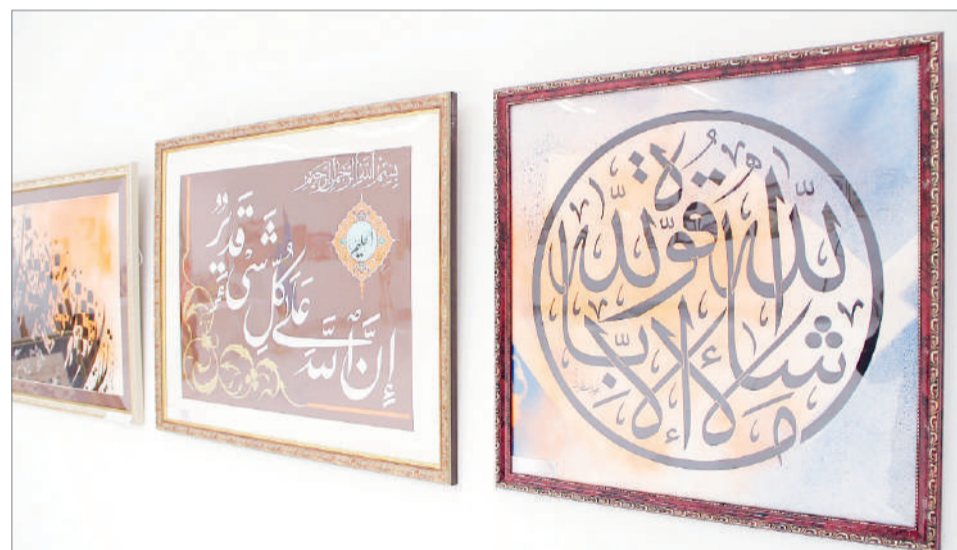 بِسْمِ اللهِ الرَّحْمٰنِ الرَّحِيمِ
إِنَّ اللهَ عَلَىٰ كُلِّ شَيْءٍ قَدِيرٌ
ما شاء الله لا قوة إلا بالله